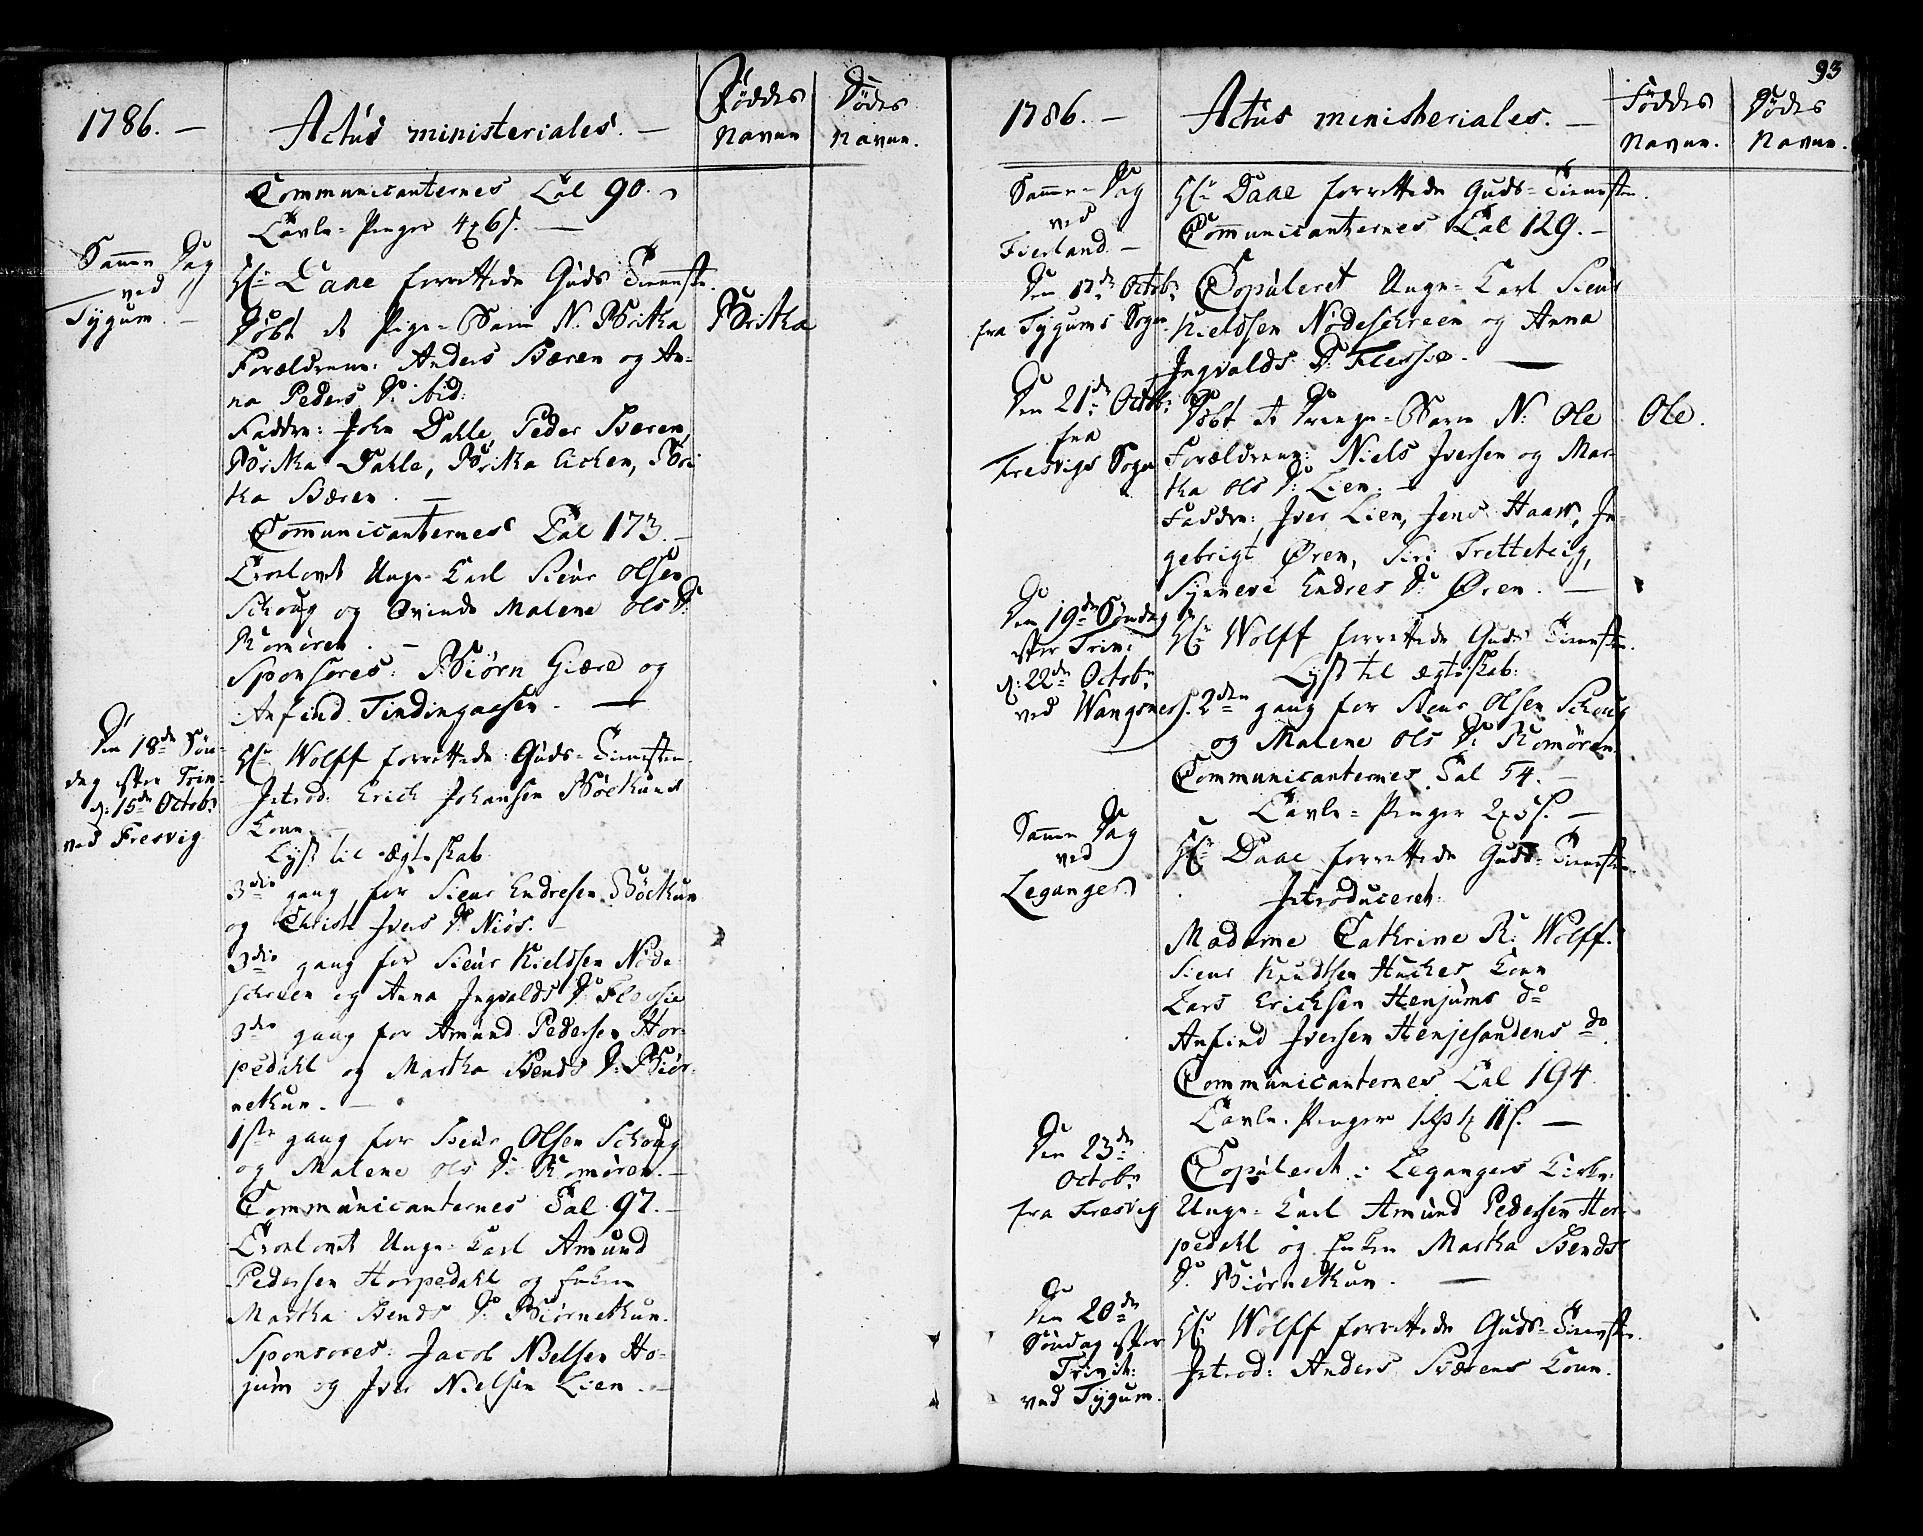 1786. —
Actus ministeriales. —
Føddes
Navne
Dødes
Navne.
Communicanternes Tal 90. —
Tavle-Penger 4 ₰ 6 s. —
Samme Dag
ved
Tygum. —
Hr. Daae forrettede Guds-Tienesten.
Døbt et Pige-Barn N. Britha
Britha
Forældrene: Anders Bæren og An-
na Peders D: ibid:
Faddre: John Dahle, Peder Bæren,
Britha Dahle, Britha Eichen, Bri
tha Bæren. —
Communicanternes Tal 173. —
Trolovet Unge-Karl Siur Olsen
Schoug og Qvinde Malene Ols D:
Romøren. —
Sponsores: Biørn Giære og
Anfind Tindingaesen. —
Den 18de Søn-
dag efter Trin:
d: 15de Octobr
ved Fresvig
Hr. Wolff forrettede Guds-Tienesten.
Introd: Erich Johansen Bøthuns
Kone.
Lyst til ægteskab
3die gang for Siur Endresen Bøthun
og Christi Ivers D: Niøs. —
3die gang for Siur Kieldsen Nøde-
schreen og Anna Ingvalds D: Flessie
3die gang for Amund Pedersen Hor-
pedahl og Martha Bends D: Biør-
nethun. —
1ste gang for Siur Olsen Schoug
og Malene Ols D: Romøren. —
Communicanternes Tal 97. —
Trolovet Unge-Karl Amund
Pedersen Horpedahl og Enken
Martha Bends D: Biørnethun.
Sponsores: Jacob Nielsen Ho-
jum og Iver Nielsen Lien. —
93
1786. —
Actus ministeriales. —
Føddes
Navne.
Dødes
Navne.
Samme-Dag
ved
Fierland —
Hr. Daae forrettede Guds-Tienesten.
Communicanternes Tal 129. —
Den 17de Octobr
fra Tygums Sogn
Copuleret Unge-Karl Siur
Kieldsen Nødeschreen og Anna
Ingvalds D: Flessie. —
Den 21de Octobr:
fra
Fresvigs Sogn
Døbt et Drenge-Barn N: Ole
Ole.
Forældrene: Niels Iversen og Mar-
tha Ols D: Lien. —
Faddre: Iver Lien, Jens Haave, In-
gebrigt Øren, Siri Tretteteig,
Synneve Endres D: Øren. —
Den 19de Søndag
efter Trin:
d: 22de Octobr
ved Wangsness.
Hr. Wolff forrettede Guds Tienesten.
Lyst til ægteskab:
2den gang for Siur Olsen Schoug
og Malene Ols D: Romøren
Communicanternes Tal 54. —
Tavle-Penger 2 ₰ 5 s. —
Samme Dag
ved
Leganger
Hr. Daae forrettede Guds-Tienesten.
Introduceret:
Madame Cathrine R: Wolff.
Siur Knudsen Huches Kone
Lars Erichsen Henjums do
Anfind Iversen Henjesandens do.
Communicanternes Tal 194
Tavle-Penger 1 ₰ 11 s. —
Den 23de
Octobr
fra Fresvig
Copuleret i Legangers Kirke:
Unge-Karl Amund Pedersen Hor-
pedahl og Enken Martha Bends
D: Biørnethun. —
Den 20de
Søndag efter
Trinit:
ved Tygum.
Hr. Wolff forrettede Guds-Tienesten.
Introd: Anders Bærens Kone.